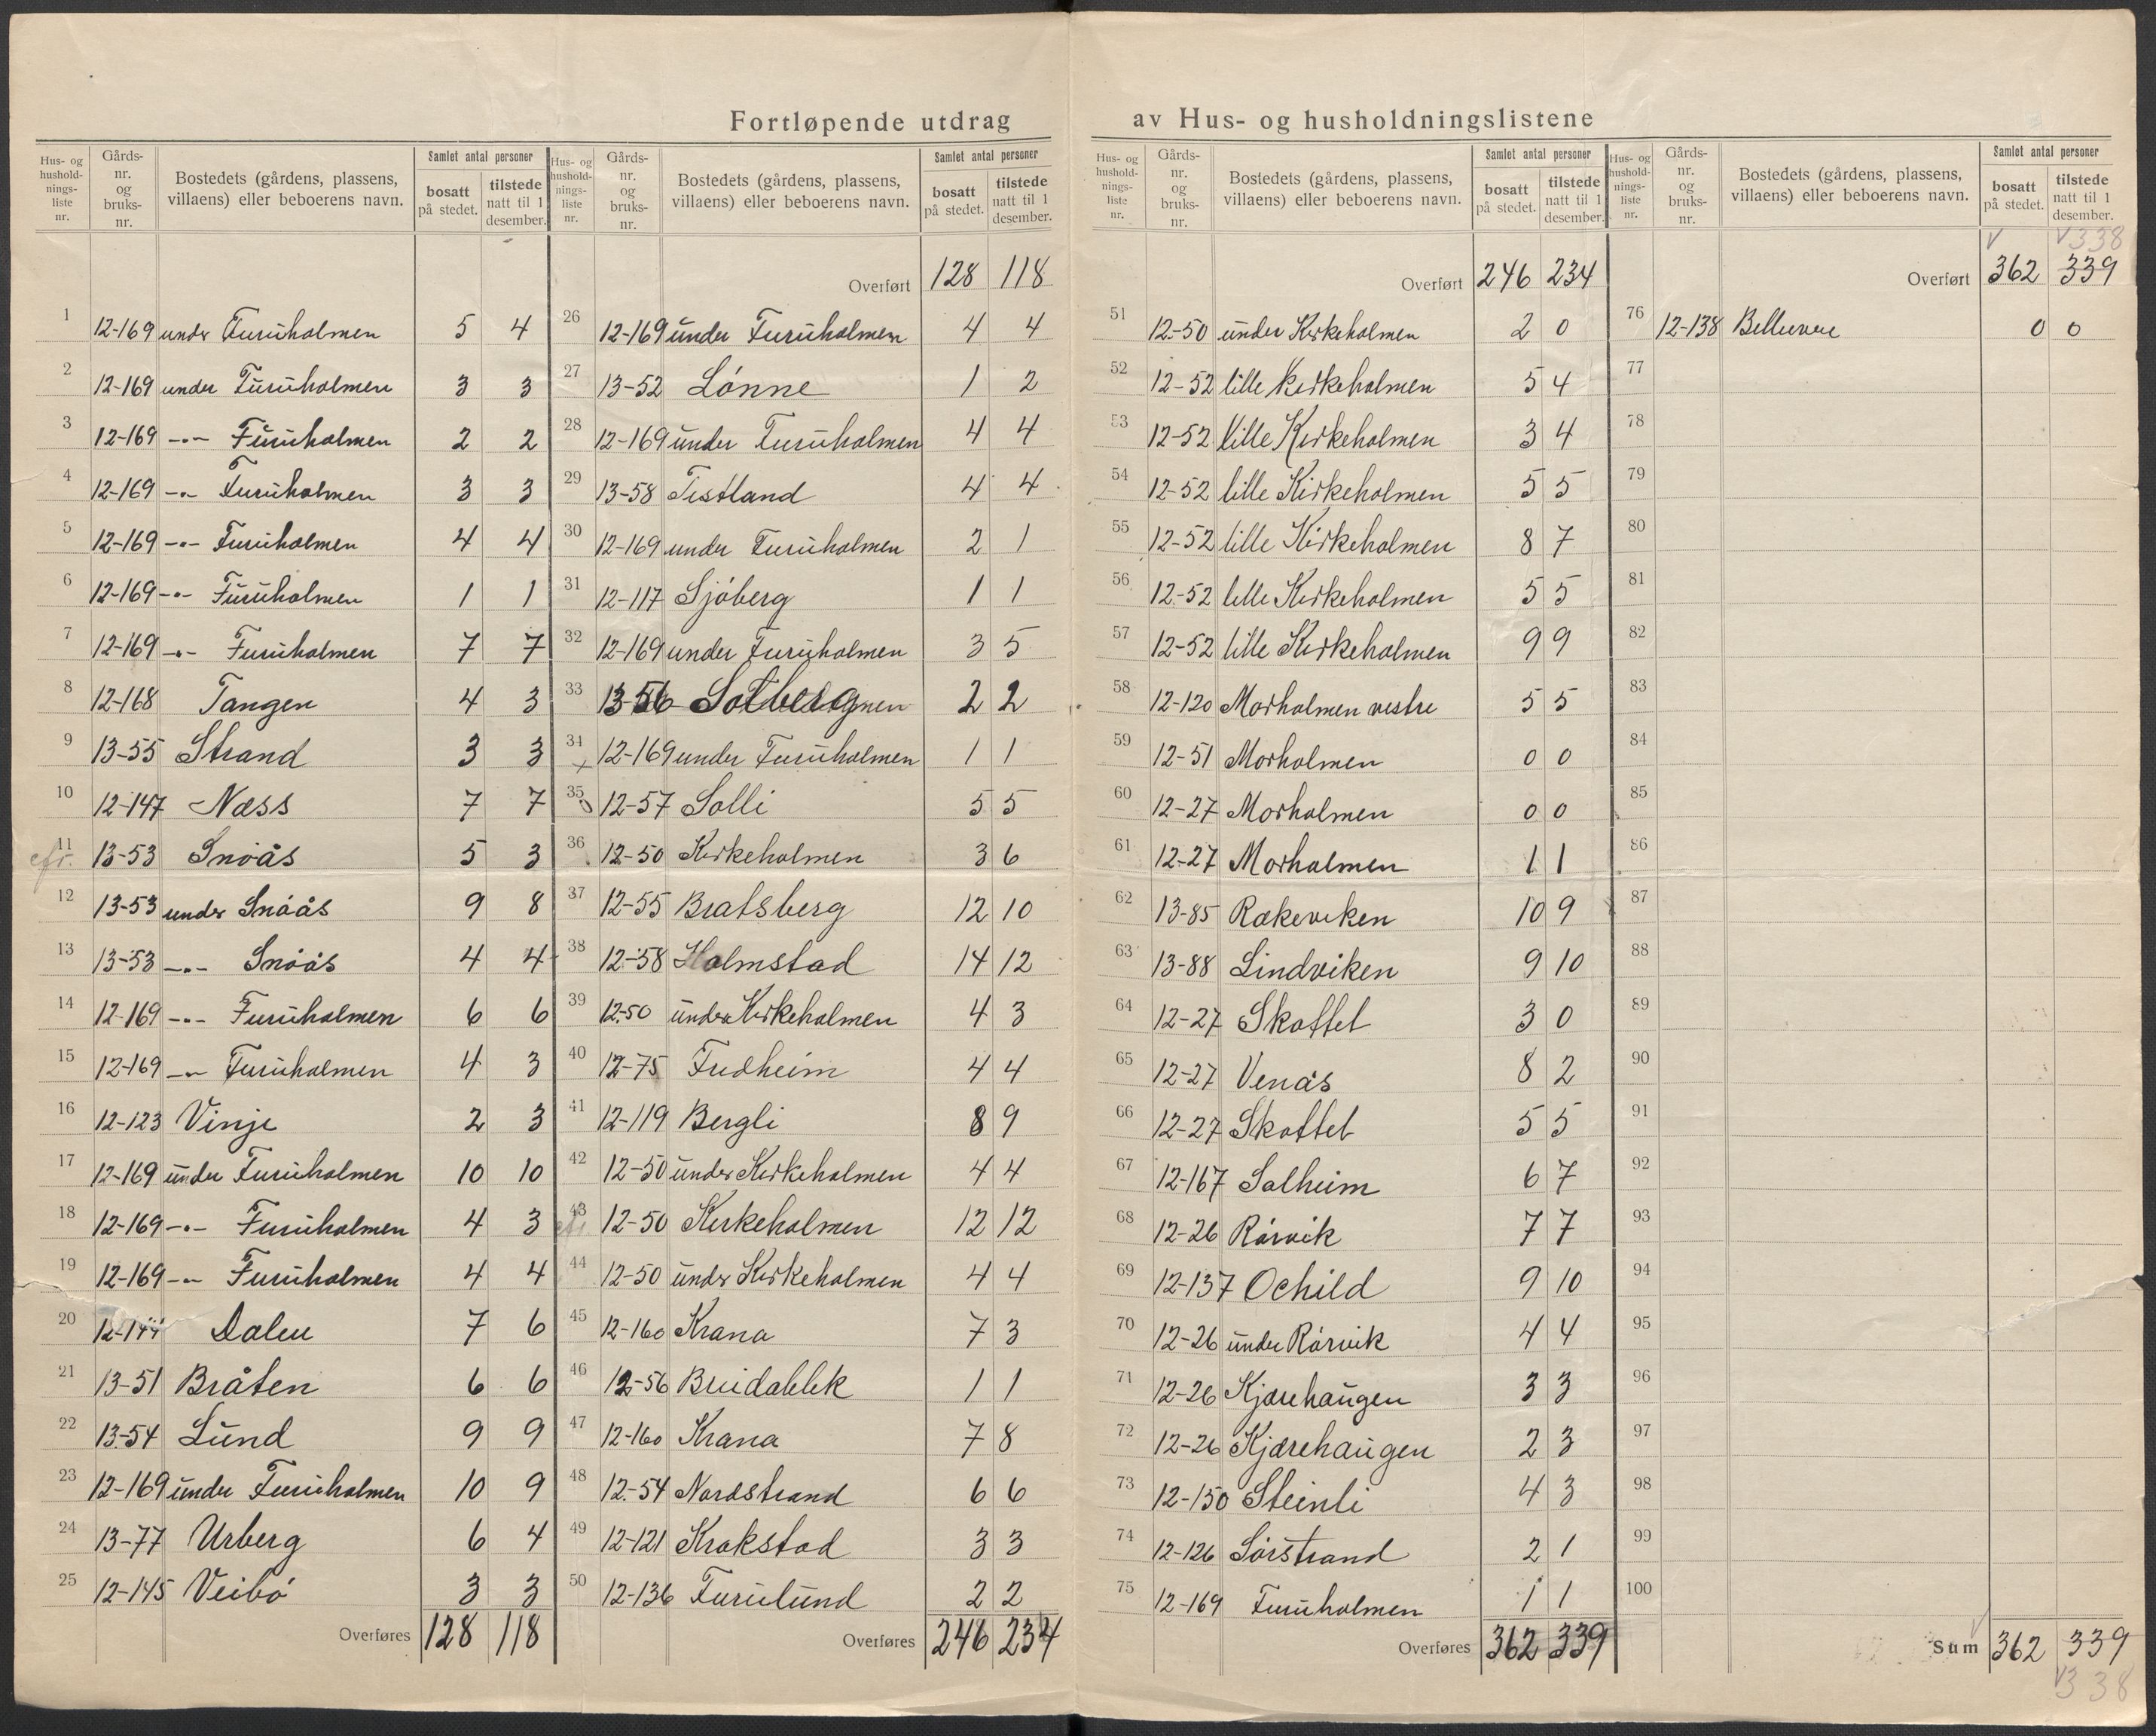 Fortløpende utdrag av Hus- og husholdningslistene
Hus- og husholdnings-liste nr. | Gårds-nr. og bruks-nr. | Bostedets (gårdens, plassens, villaens) eller beboerens navn. | Samlet antal personer | bosatt på stedet. | tilstede natt til 1 desember.
1 12-169 under Furuholmen 5 4
2 12-169 under Furuholmen 3 3
3 12-169 -"- Furuholmen 2 2
4 12-169 -"- Furuholmen 3 3
5 12-169 -"- Furuholmen 4 4
6 12-169 -"- Furuholmen 1 1
7 12-169 -"- Furuholmen 7 7
8 12-168 Tangen 4 3
9 13-55 Strand 3 3
10 12-147 Næss 7 7
11 cfr. 13-53 Snöås 5 3
12 13-53 under Snöås 9 8
13 13-53 -"- Snöås 4 4
14 12-169 -"- Furuholmen 6 6
15 12-169 -"- Furuholmen 4 3
16 12-123 Vinje 2 3
17 12-169 under Furuholmen 10 10
18 12-169 -"- Furuholmen 4 3
19 12-169 -"- Furuholmen 4 4
20 12-144 Dalen 7 6
21 13-51 Bråten 6 6
22 13-54 Lund 9 9
23 12-169 under Furuholmen 10 9
24 13-77 Urberg 6 4
25 12-145 Veibö 3 3
Overføres 128 118
Hus- og husholdnings-liste nr. | Gårds-nr. og bruks-nr. | Bostedets (gårdens, plassens, villaens) eller beboerens navn. | Samlet antal personer | bosatt på stedet. | tilstede natt til 1 desember.
Overført 128 118
26 12-169 under Furuholmen 4 4
27 13-52 Lönne 1 2
28 12-169 under Furuholmen 4 4
29 13-58 Tistland 4 4
30 12-169 under Furuholmen 2 1
31 12-117 Sjöberg 1 1
32 12-169 under Furuholmen 3 5
33 13-56 Solberg 2 2
34 12-169 under Furuholmen 1 1
35 12-57 Solli 5 5
36 12-50 Kirkeholmen 3 6
37 12-55 Bratsberg 12 10
38 12-58 Holmstad 14 12
39 12-50 under Kirkeholmen 4 3
40 12-75 Fredheim 4 4
41 12-119 Bergli 8 9
42 12-50 under Kirkeholmen 4 4
43 cfr. 12-50 Kirkeholmen 12 12
44 12-50 under Kirkeholmen 4 4
45 12-160 Krana 7 3
46 12-56 Breidablik 1 1
47 12-160 Krana 7 8
48 12-54 Nordstrand 6 6
49 12-121 Krokstad 3 3
50 12-136 Furulund 2 2
Overføres 246 234
Hus- og husholdnings-liste nr. | Gårds-nr. og bruks-nr. | Bostedets (gårdens, plassens, villaens) eller beboerens navn. | Samlet antal personer | bosatt på stedet. | tilstede natt til 1 desember.
Overført 246 234
51 12-50 under Kirkeholmen 2 0
52 12-52 lille Kirkeholmen 5 4
53 12-52 lille Kirkeholmen 3 4
54 12-52 lille Kirkeholmen 5 5
55 12-52 lille Kirkeholmen 8 7
56 12-52 lille Kirkeholmen 5 5
57 12-52 lille Kirkeholmen 9 9
58 12-120 Morholmen vestre 5 5
59 12-51 Morholmen 0 0
60 12-27 Morholmen 0 0
61 12-27 Morholmen 1 1
62 13-85 Rækeviken 10 9
63 13-88 Lindviken 9 10
64 12-27 Skottet 3 0
65 12-27 Venås 8 2
66 12-27 Skottet 5 5
67 12-167 Solheim 6 7
68 12-26 Rörvik 7 7
69 12-137 Ochild 9 10
70 12-26 under Rörvik 4 4
71 12-26 Kjærehaugen 3 3
72 12-26 Kjærehaugen 2 3
73 12-150 Steinli 4 3
74 12-126 Sörstrand 2 1
75 12-169 Furuholmen 1 1
Overføres 362 339
Hus- og husholdnings-liste nr. | Gårds-nr. og bruks-nr. | Bostedets (gårdens, plassens, villaens) eller beboerens navn. | Samlet antal personer | bosatt på stedet. | tilstede natt til 1 desember.
v v338
Overført 362 339
76 12-138 Bellevue 0 0
77
78
79
80
81
82
83
84
85
86
87
88
89
90
91
92
93
94
95
96
97
98
99
100
Sum 362 339
v338